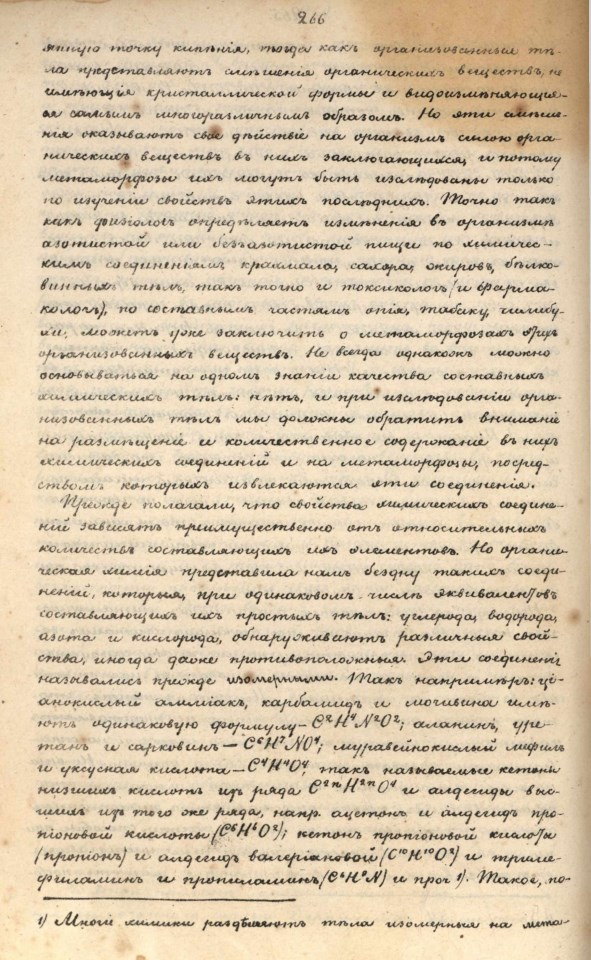 266
янную точку кипѣнія, тогда какъ организованныя тѣ-
ла представляютъ смѣшенія органическихъ веществъ, не
имѣющія кристаллической формы и видоизмѣняющія-
ся самымъ многоразличнымъ образомъ. Но эти смѣше-
нія оказываютъ свое дѣйствіе на организмъ силою орга-
ническихъ веществъ въ нихъ заключающихся, и потому
метаморфозы ихъ могутъ быть изслѣдованы только
по изученіи свойствъ этихъ послѣднихъ. Точно такъ
какъ физіологъ опредѣляетъ измѣненія въ организмѣ
азотистой или безъазотистой пищи по химичес-
кимъ соединеніямъ крахмала, сахара, жировъ, бѣлко-
винныхъ тѣлъ, такъ точно и токсикологъ (и фарма-
кологъ), по составнымъ частямъ опія, табаку, чилибу-
хи, можетъ уже заключить о метаморфозахъ этихъ
организованныхъ веществъ. Не всегда однакожъ можно
основываться на одномъ знаніи качества составныхъ
химическихъ тѣлъ: нѣтъ, и при изслѣдованіи орга-
низованныхъ тѣлъ мы должны обратить вниманіе
на размѣщеніе и количественное содержаніе въ нихъ
химическихъ соединеній и на метаморфозы, посред-
ствомъ которыхъ извлекаются эти соединенія.
Прежде полагали, что свойства химическихъ соедине-
ній зависятъ приимущественно отъ относительныхъ
количествъ составляющихъ ихъ элементовъ. Но органи-
ческая химія представила намъ бездну такихъ соеди-
неній, которыя, при одинаковомъ числѣ эквивалентовъ
составляющихъ ихъ простыхъ тѣлъ: углерода, водорода,
азота и кислорода, обнаруживаютъ различныя свой-
ства, иногда даже противоположныя. Эти соединенія
назывались прежде изомерными. Такъ напримѣръ: ці-
анокислый амміакъ, карбамидъ и мочевина имѣ-
ютъ одинаковую формулу – C²H⁴N²O²; аланинъ, уре-
танъ и саркозинъ – C⁶H⁷NO⁴; муравейнокислый мефилъ
и уксусная кислота – C⁴H⁴O⁴; такъ называемые кетоны
низшихъ кислотъ изъ ряда C²ⁿH²ⁿO⁴ и алдегиды выс-
шихъ изъ того же ряда, напр. ацетонъ и алдегидъ про-
піоновой кислоты (C⁶H⁶O²); кетонъ пропіоновой кислоты
(пропіонъ) и алдегидъ валеріановой (C¹⁰H¹⁰O²) и триме-
филаминъ и пропиламинъ (C⁶H⁹N) и проч ¹). Такое, по-
¹) Многіе химики раздѣляютъ тѣла изомерныя на мета-